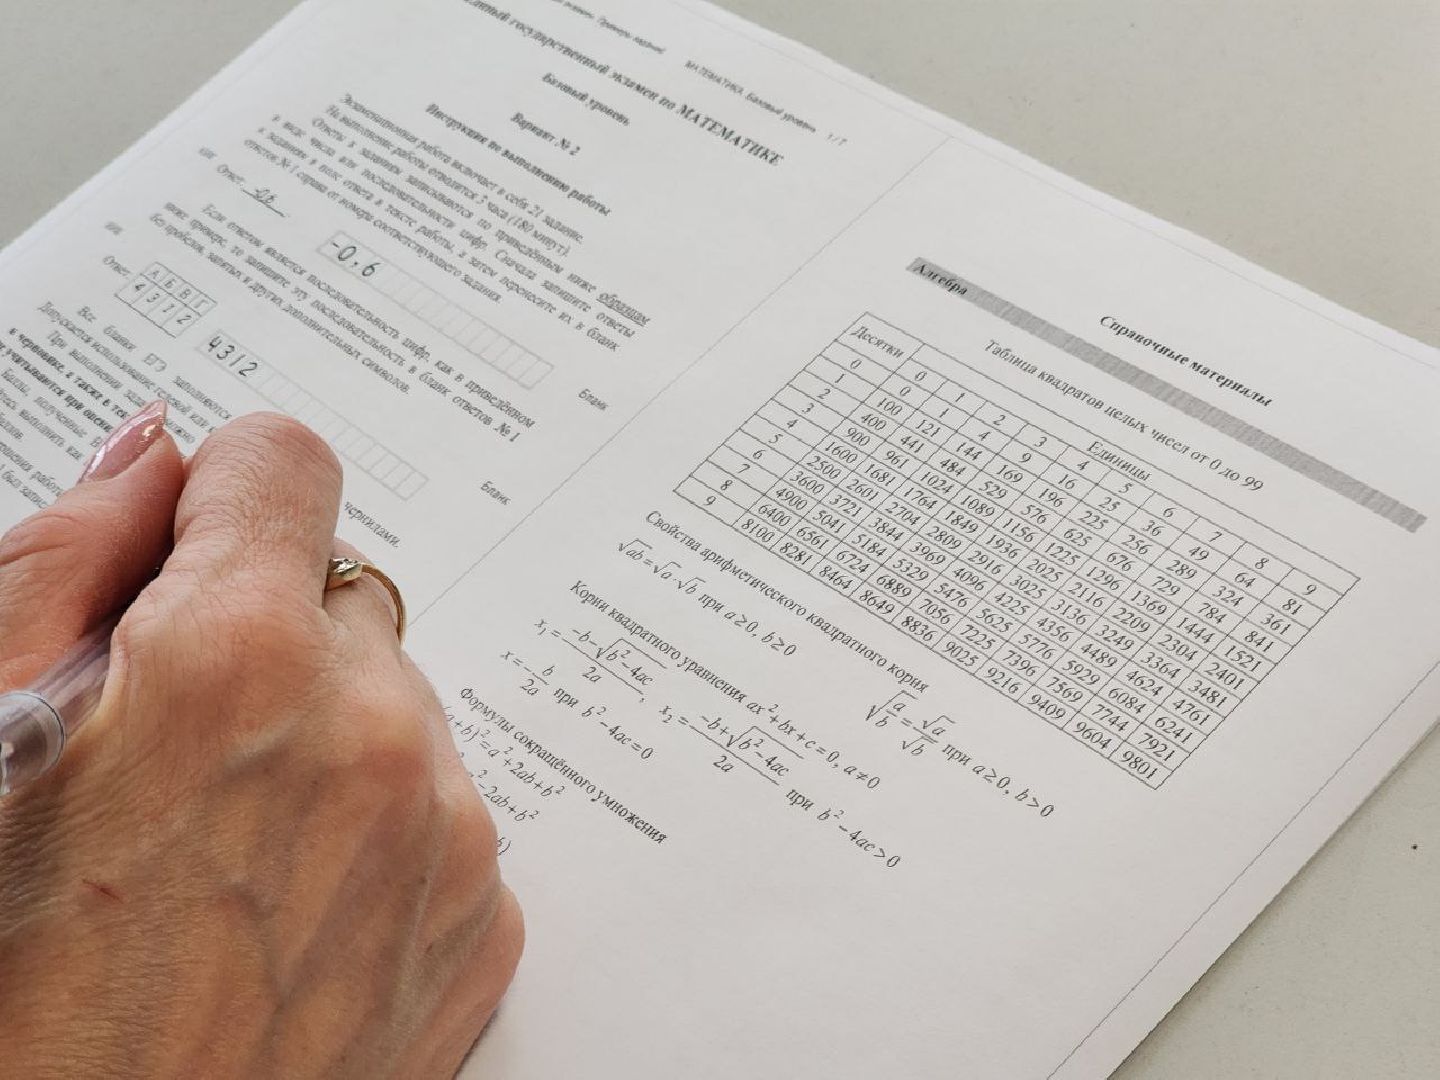 МАТЕМАТИКА. Базовый уровень 1 / 7
государственный экзамен по МАТЕМАТИКЕ
Базовый уровень
Вариант № 2
Инструкция по выполнению работы
Экзаменационная работа включает в себя 21 задание.
На выполнение работы отводится 3 часа (180 минут).
Ответы к заданиям записываются по приведённым ниже образцам
в виде числа или последовательности цифр. Сначала запишите ответы
к заданиям в поле ответа в тексте работы, а затем перенесите их в бланк
ответов № 1 справа от номера соответствующего задания.
КИМ
Ответ: -0,6
-0,6
Бланк
Если ответом является последовательность цифр, как в приведённом
ниже примере, то запишите эту последовательность в бланк ответов № 1
без пробелов, запятых и других дополнительных символов.
КИМ
Ответ:
А Б В Г
4 3 1 2
4312
Бланк
Все бланки ЕГЭ заполняются
чернилами.
Допускается использование гелевой или к
При выполнении зада можно
в черновике, а также в тек
не учитываются при оценк
Справочные материалы
Алгебра
Таблица квадратов целых чисел от 0 до 99
Десятки Единицы
0 1 2 3 4 5 6 7 8 9
0 0 1 4 9 16 25 36 49 64 81
1 100 121 144 169 196 225 256 289 324 361
2 400 441 484 529 576 625 676 729 784 841
3 900 961 1024 1089 1156 1225 1296 1369 1444 1521
4 1600 1681 1764 1849 1936 2025 2116 2209 2304 2401
5 2500 2601 2704 2809 2916 3025 3136 3249 3364 3481
6 3600 3721 3844 3969 4096 4225 4356 4489 4624 4761
7 4900 5041 5184 5329 5476 5625 5776 5929 6084 6241
8 6400 6561 6724 6889 7056 7225 7396 7569 7744 7921
9 8100 8281 8464 8649 8836 9025 9216 9409 9604 9801
Свойства арифметического квадратного корня
√ab=√a·√b при a≥0, b≥0 √(a/b)=√a/√b при a≥0, b>0
Корни квадратного уравнения ax²+bx+c=0, a≠0
x₁=(-b-√(b²-4ac))/2a, x₂=(-b+√(b²-4ac))/2a при b²-4ac>0
x=-b/2a при b²-4ac=0
Формулы сокращённого умножения
(a+b)²=a²+2ab+b²
²-2ab+b²
b)